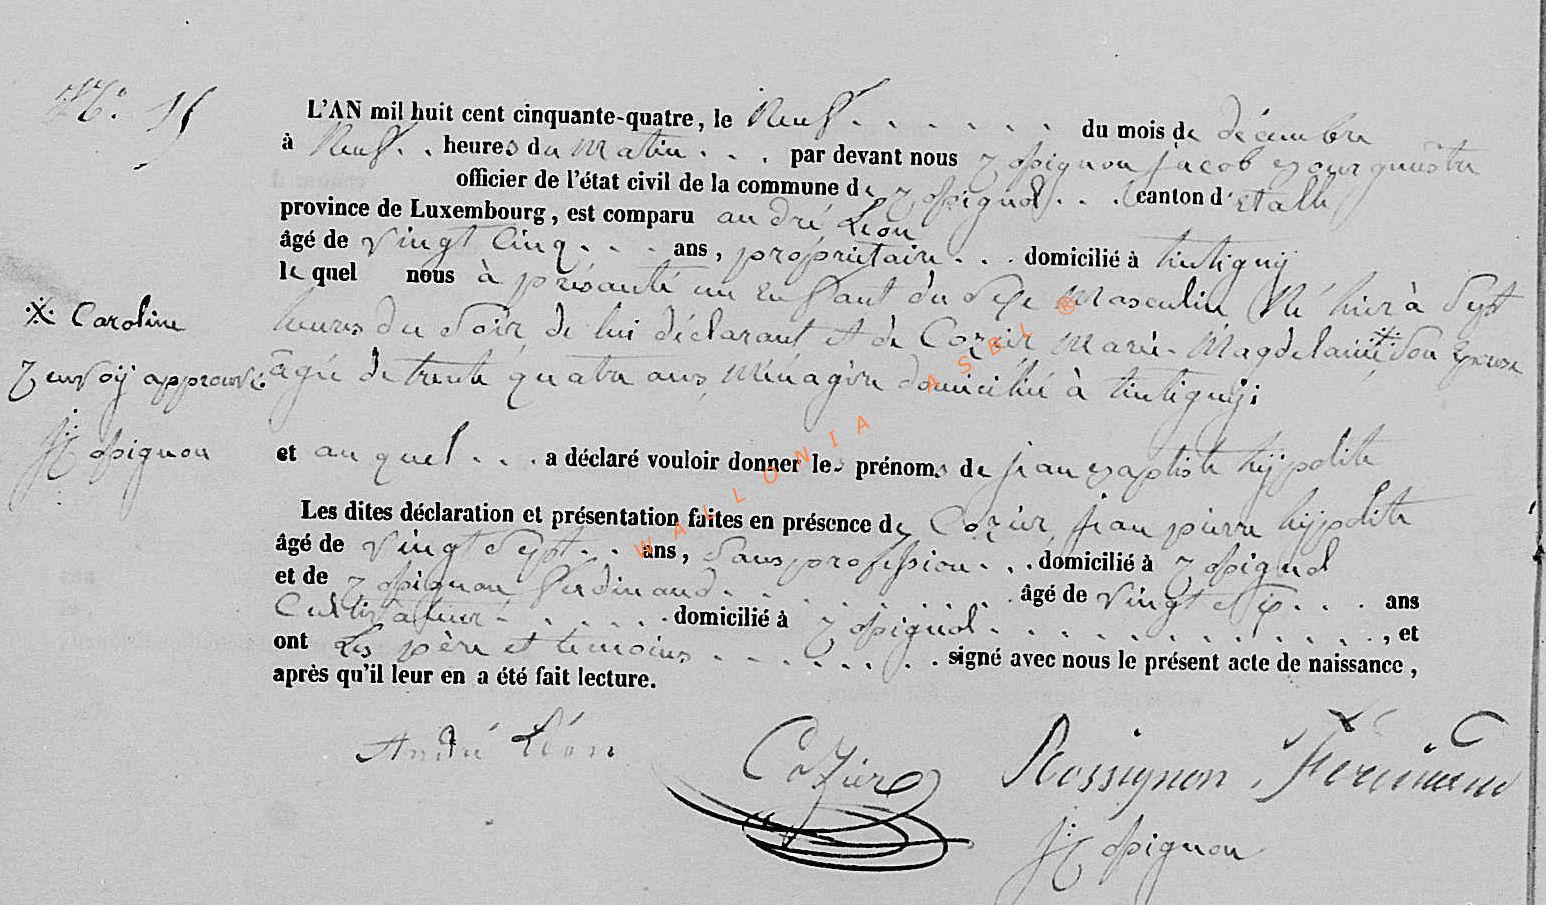 N.° 15
L'AN mil huit cent cinquante-quatre, le Neuf . . . . . . du mois de décembre
à Neuf . . heures du matin . . . par devant nous Rossignon Jacob Bourguéstre
officier de l'état civil de la commune de Rossignol . . . (canton d'Etalle)
province de Luxembourg, est comparu andré Léon
âgé de vingt cinq . . . ans, propriétaire . . . domicilié à tintigny
lequel nous à présenté un Enfant du Sexe Masculin Né hier à Sept
heures du Soir de lui déclarant et de Cozier Marie-Magdelaine ※ Son Epouse
âgée de trente quatre ans, Ménagère domiciliée à tintigny;
※ Caroline
Renvoÿ approuvé
J: Rossignon
et auquel . . . a déclaré vouloir donner les prénoms de Jean Baptiste hÿpolite
Les dites déclaration et présentation faites en présence de Cozier Jean pierre hÿpolite
âgé de vingt Sept . . . ans, Sans profession . . . domicilié à Rossignol
et de Rossignon Ferdinand . . . . . . . . . . âgé de vingt Six . . . ans
Cultivateur . . . . . . domicilié à Rossignol . . . . . . . . . . . . . . , et
ont Les père et temoins . . . . . . . signé avec nous le présent acte de naissance,
après qu'il leur en a été fait lecture.
André Léon Cozier Rossignon Ferdinand
J: Rossignon
WALLONIA ASBL ®